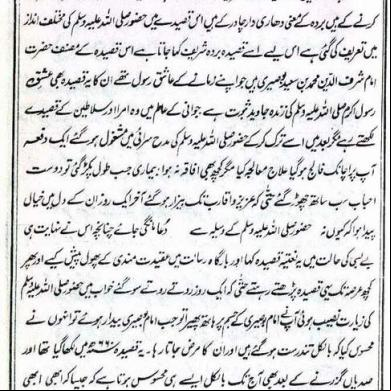 کرنے کے ہیں بردہ کے معنی دھاری دار چادر کے ہیں اس قصیدے میں حضور صلی اللہ علیہ وسلم کی مختلف انداز
میں تعریف کی گئی ہے اس لیے اسے قصیدہ بردہ شریف کہا جاتا ہے اس قصیدہ کے مصنف حضرت
امام شرف الدین محمد بن سعید بوصیری ہیں جو اپنے زمانے کے عاشق رسول تھے ان کا یہ قصیدہ بھی عشق
رسول اکرم صلی اللہ علیہ وسلم کی زندہ جاوید ثبوت ہے جوانی کے عالم میں وہ امرا اور سلاطین کے قصیدے
لکھتے رہے مگر بعد میں اسے ترک کر کے حضور صلی اللہ علیہ وسلم کی مدح سرائی میں مشغول ہو گئے ایک دفعہ
آپ پر اچانک فالج ہو گیا علاج معالجہ کیا مگر کچھ بھی افاقہ نہ ہوا بیماری جب طول پکڑ گئی تو دوست
احباب سب ساتھ چھوڑ گئے حتیٰ کہ عزیز و اقارب تک بیزار ہو گئے آخر ایک روز ان کے دل میں خیال
پیدا ہوا کہ کیوں نہ حضور صلی اللہ علیہ وسلم کے وسیلہ سے دعا مانگی جائے چنانچہ اس نے نہایت ہی
بے بسی کی حالت میں یہ نعتیہ قصیدہ کہا اور بارگاہ رسالت میں عقیدت مندی کے پھول پیش کیے اور پھر
کچھ عرصہ تک یہی قصیدہ پڑھتے رہتے حتیٰ کہ ایک روز روتے روتے سو گئے خواب میں حضور صلی اللہ علیہ وسلم
کی زیارت نصیب ہوئی آپ نے امام بوصیری کے جسم پر ہاتھ پھیرا تو جب امام بوصیری بیدار ہوئے تو انہوں نے
محسوس کیا کہ بالکل تندرست ہو گئے ہیں اور ان کا مرض جاتا رہا۔ یہ قصیدہ ۶۶۰ھ میں لکھا گیا تھا اور
صدیاں گزرنے کے بعد بھی آج تک بالکل ایسے ہی محسوس ہوتا ہے کہ جیسا کہ ابھی ابھی